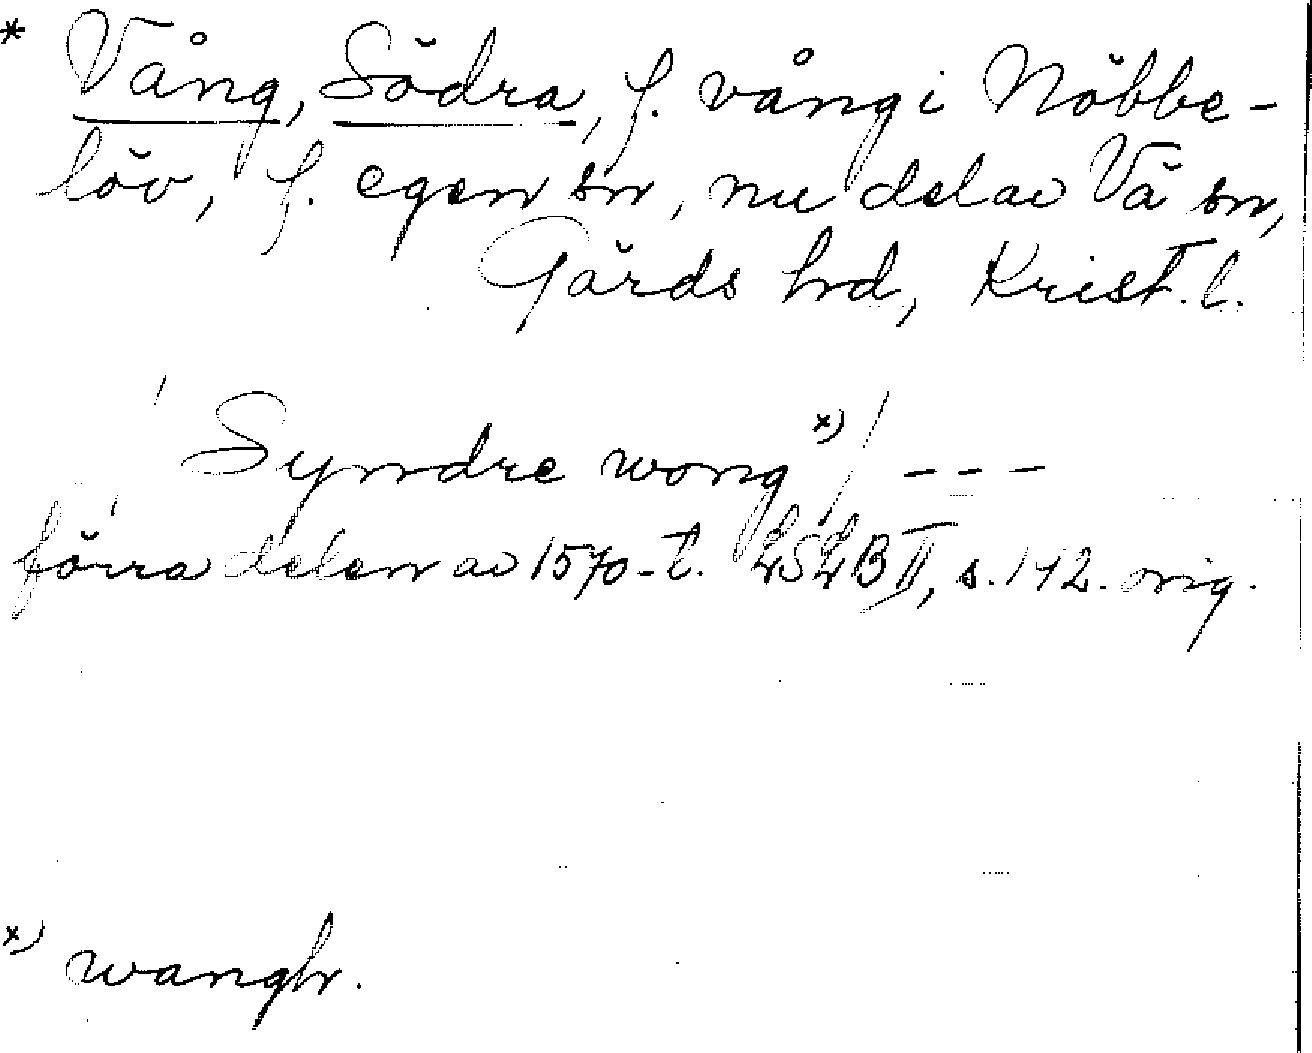 * Vång, Södra, f. vång i Nöbbe-
löv, f. egen sn, nu del av Vä sn,
Gärds hd, Krist. l.
Syndre wong x) / ---
förra delen av 1570-t. LSLB II, s. 142. orig.
x) wangh.